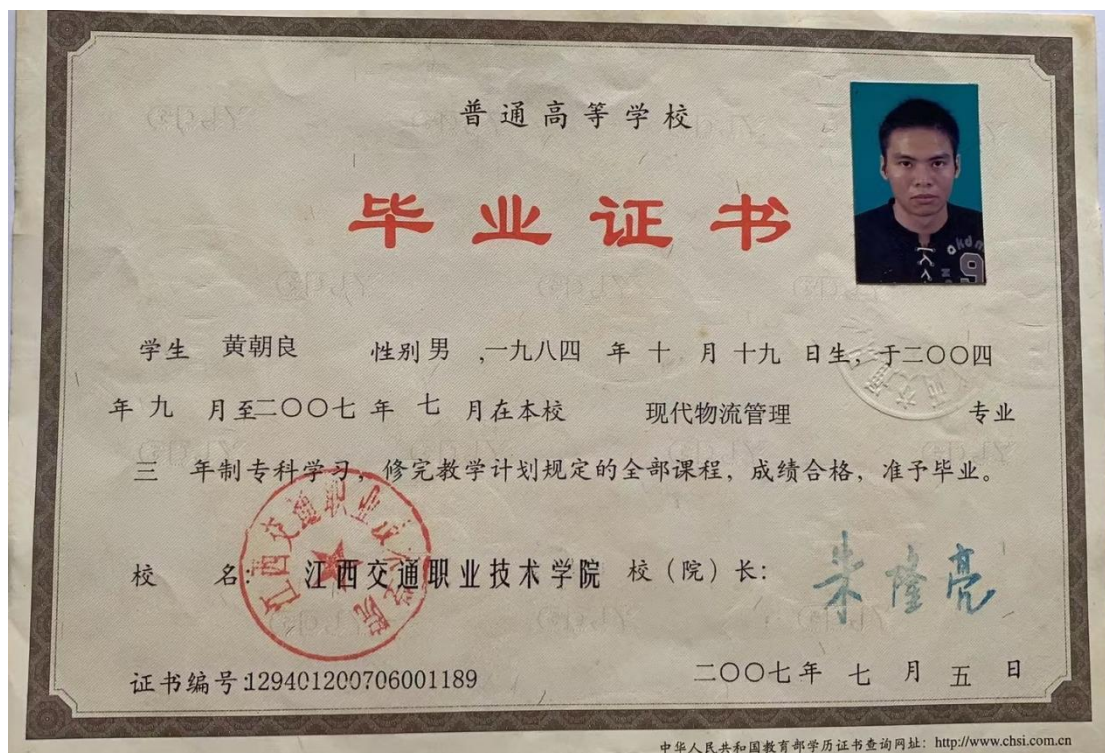 普通高等学校
毕业证书
学生 黄朝良 性别 男 ,一九八四 年 十 月 十九 日生，于二〇〇四
年 九 月至二〇〇七 年 七 月在本校 现代物流管理 专业
三 年制专科学习，修完教学计划规定的全部课程，成绩合格，准予毕业。
校 名: 江西交通职业技术学院 校（院）长:
朱隆亮
江西交通职业技术学院
证书编号:129401200706001189
二〇〇七年 七 月 五 日
中华人民共和国教育部学历证书查询网址: http://www.chsi.com.cn